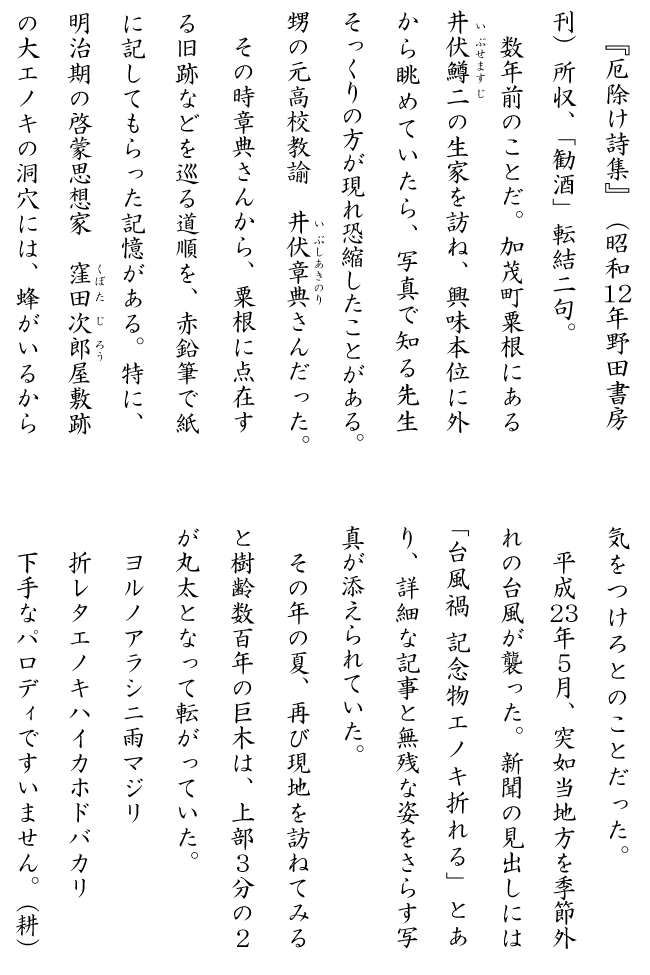 『厄除け詩集』（昭和12年野田書房
刊）所収、「勧酒」転結二句。
数年前のことだ。加茂町粟根にある
井伏鱒二の生家を訪ね、興味本位に外
いぶせますじ
から眺めていたら、写真で知る先生
そっくりの方が現れ恐縮したことがある。
甥の元高校教諭　井伏章典さんだった。
いぶしあきのり
その時章典さんから、粟根に点在す
る旧跡などを巡る道順を、赤鉛筆で紙
に記してもらった記憶がある。特に、
明治期の啓蒙思想家　窪田次郎屋敷跡
くぼたじろう
の大エノキの洞穴には、蜂がいるから
気をつけろとのことだった。
平成23年５月、突如当地方を季節外
れの台風が襲った。新聞の見出しには
「台風禍 記念物エノキ折れる」とあ
り、詳細な記事と無残な姿をさらす写
真が添えられていた。
その年の夏、再び現地を訪ねてみる
と樹齢数百年の巨木は、上部３分の２
が丸太となって転がっていた。
ヨルノアラシニ雨マジリ
折レタエノキハイカホドバカリ
下手なパロディですいません。（耕）